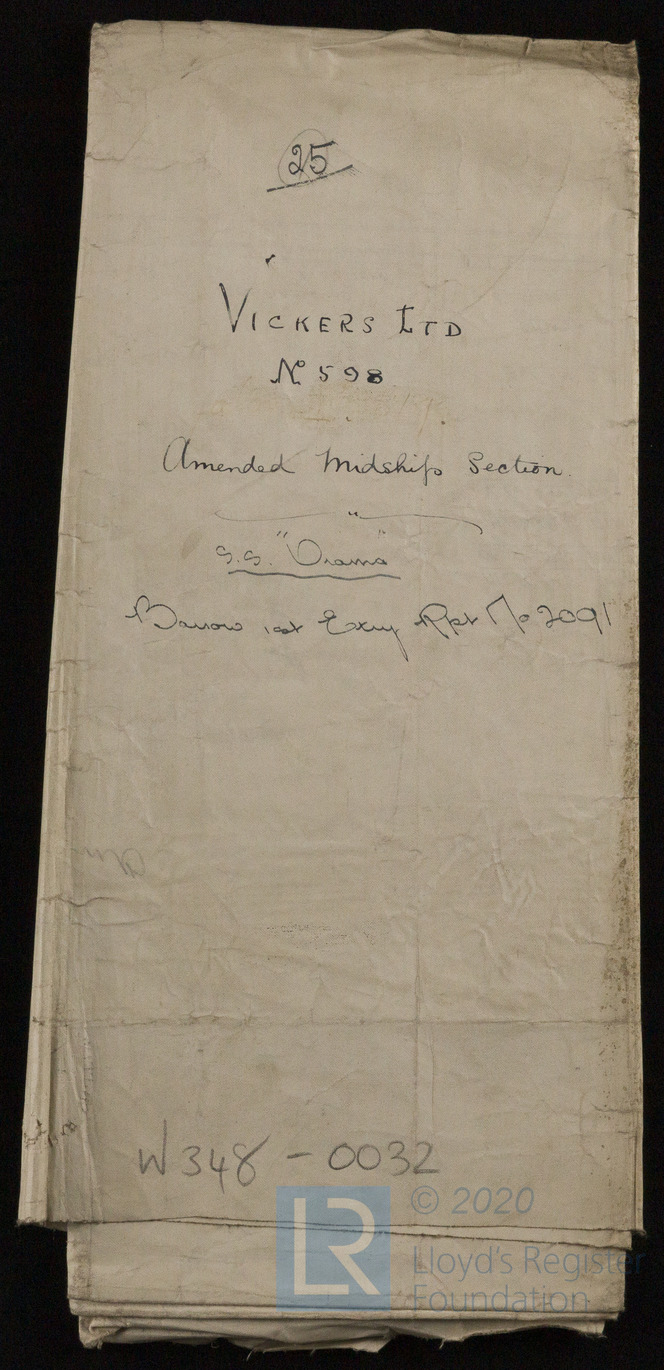 25
VICKERS LTD
No 598
Amended Midship Section.
S.S. "Orama"
Barrow 1st Entry Rpt No 2091
W348-0032
LR
© 2020
Lloyd's Register
Foundation